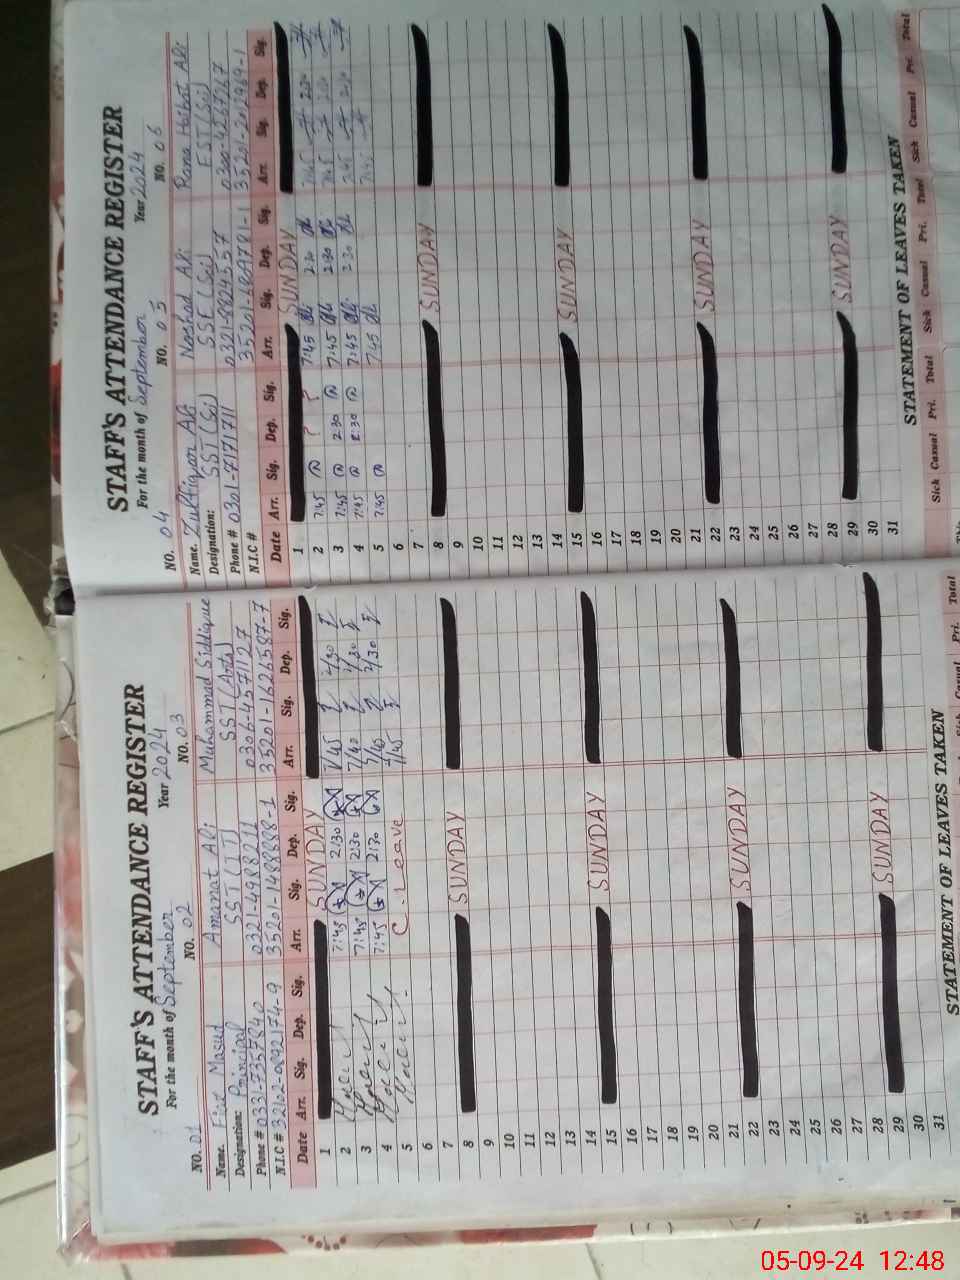 STAFF'S ATTENDANCE REGISTER
For the month of September Year 2024
NO. 01 NO. 02 NO. 03
Name. Fiaz Masud Amanat Ali Muhammad Siddique
Designation: Principal SST (IT) SST (Arts)
Phone # 0331-7357840 0321-4988211 0306-4571127
N.I.C # 32102-0892174-9 35201-1488888-1 35201-1626587-7
Date Arr. Sig. Dep. Sig. Arr. Sig. Dep. Sig. Arr. Sig. Dep. Sig.
1 SUNDAY
2 7:45 2:30 7/45 2/30
3 7:45 2:30 7/40 2/30
4 7:45 2:30 7/40 2/30
5 C. Leave 7/45
6
7
8 SUNDAY
9
10
11
12
13
14
15 SUNDAY
16
17
18
19
20
21
22 SUNDAY
23
24
25
26
27
28
29 SUNDAY
30
31
STATEMENT OF LEAVES TAKEN
Casual Pri. Total
STAFF'S ATTENDANCE REGISTER
For the month of September Year 2024
NO. 04 NO. 05 NO. 06
Name. Zulfiqar Ali Noshad Ali Rana Haibat Ali
Designation: SST (Sci) SSE (Sci) EST (Sci)
Phone # 0301-7171711 0321-8824557 0300-4267267
N.I.C # 35201-4869781-1 35201-2012969-1
Date Arr. Sig. Dep. Sig. Arr. Sig. Dep. Sig. Arr. Sig. Dep. Sig.
1 SUNDAY
2 7:45 ? ? 7:45 2:30 7:45 2:30
3 7:45 2:30 7:45 2:30 7:45 2:30
4 7:45 2:30 7:45 2:30 7:45 2:30
5 7:45 7:45 7:45
6
7
8 SUNDAY
9
10
11
12
13
14
15 SUNDAY
16
17
18
19
20
21
22 SUNDAY
23
24
25
26
27
28
29 SUNDAY
30
31
STATEMENT OF LEAVES TAKEN
Sick Casual Pri. Total Sick Casual Pri. Total Sick Casual Pri. Total
05-09-24 12:48